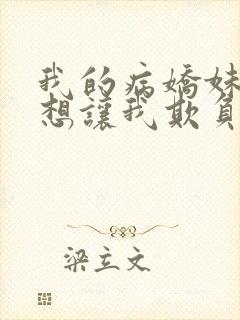 我的病嬌妹
想讓我欺負
梁立文